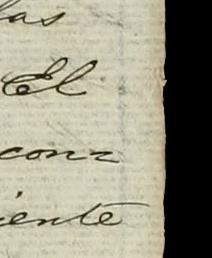 las
El
con=
iente